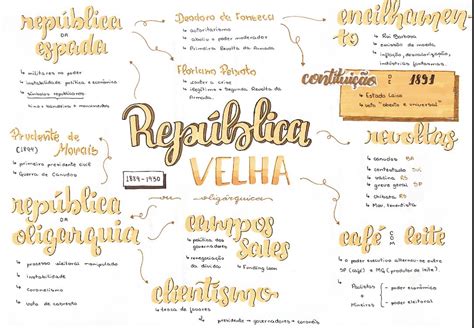 república
DA
espada
↳ militares no poder
↳ instabilidade: política e econômica
↳ símbolos republicanos
↳ hino + bandeira + monumentos
Deodoro da Fonseca
↳ autoritarismo
↳ aboliu o poder moderador
↳ Primeira Revolta da Armada
Floriano Peixoto
↳ combater a crise
↳ ilegítimo = Segunda Revolta da
Armada.
encilhamen-
to
↳ Rui Barbosa
↳ emissão de moeda
↳ inflação, desmoralização,
indústrias fantasmas.
contituição DE 1891
↳ Estado Laico
↳ voto "aberto e universal"
Prudente de
Morais
(1894)
↳ primeiro presidente civil
↳ Guerra de Canudos
República
VELHA
1889-1930
ou
oligárquica
revoltas
↳ canudos BA
↳ contestado SC
↳ vacina RJ
↳ greve geral SP
↳ chibata RJ
↳ Mov. tenentista
república
DA
oligarquia
↳ processo eleitoral manipulado
↳ instabilidade
↳ coronelismo
↳ voto de cabresto
campos
sales
↳ política dos
governadores
↳ renegociação
da dívida
↳ Funding Loan
clientismo
↳ troca de favores
↳ presidente → governadores → coronéis
café COM leite
↳ o poder executivo alternava-se entre
SP (café) e MG (produtor de leite).
↳ Paulistas = poder
econômico
↳ Mineiros = poder
eleitoral